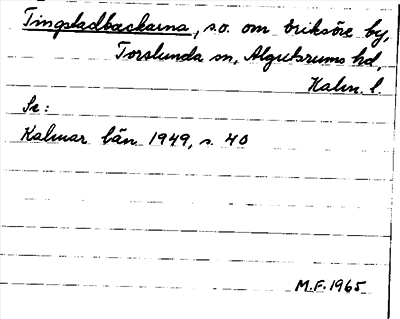 Tingstadbackarna, s.o. om Eriksöre by,
Torslunda sn, Algutsrums hd,
Kalm. l.
Se:
Kalmar län 1949, s. 40
M.F. 1965